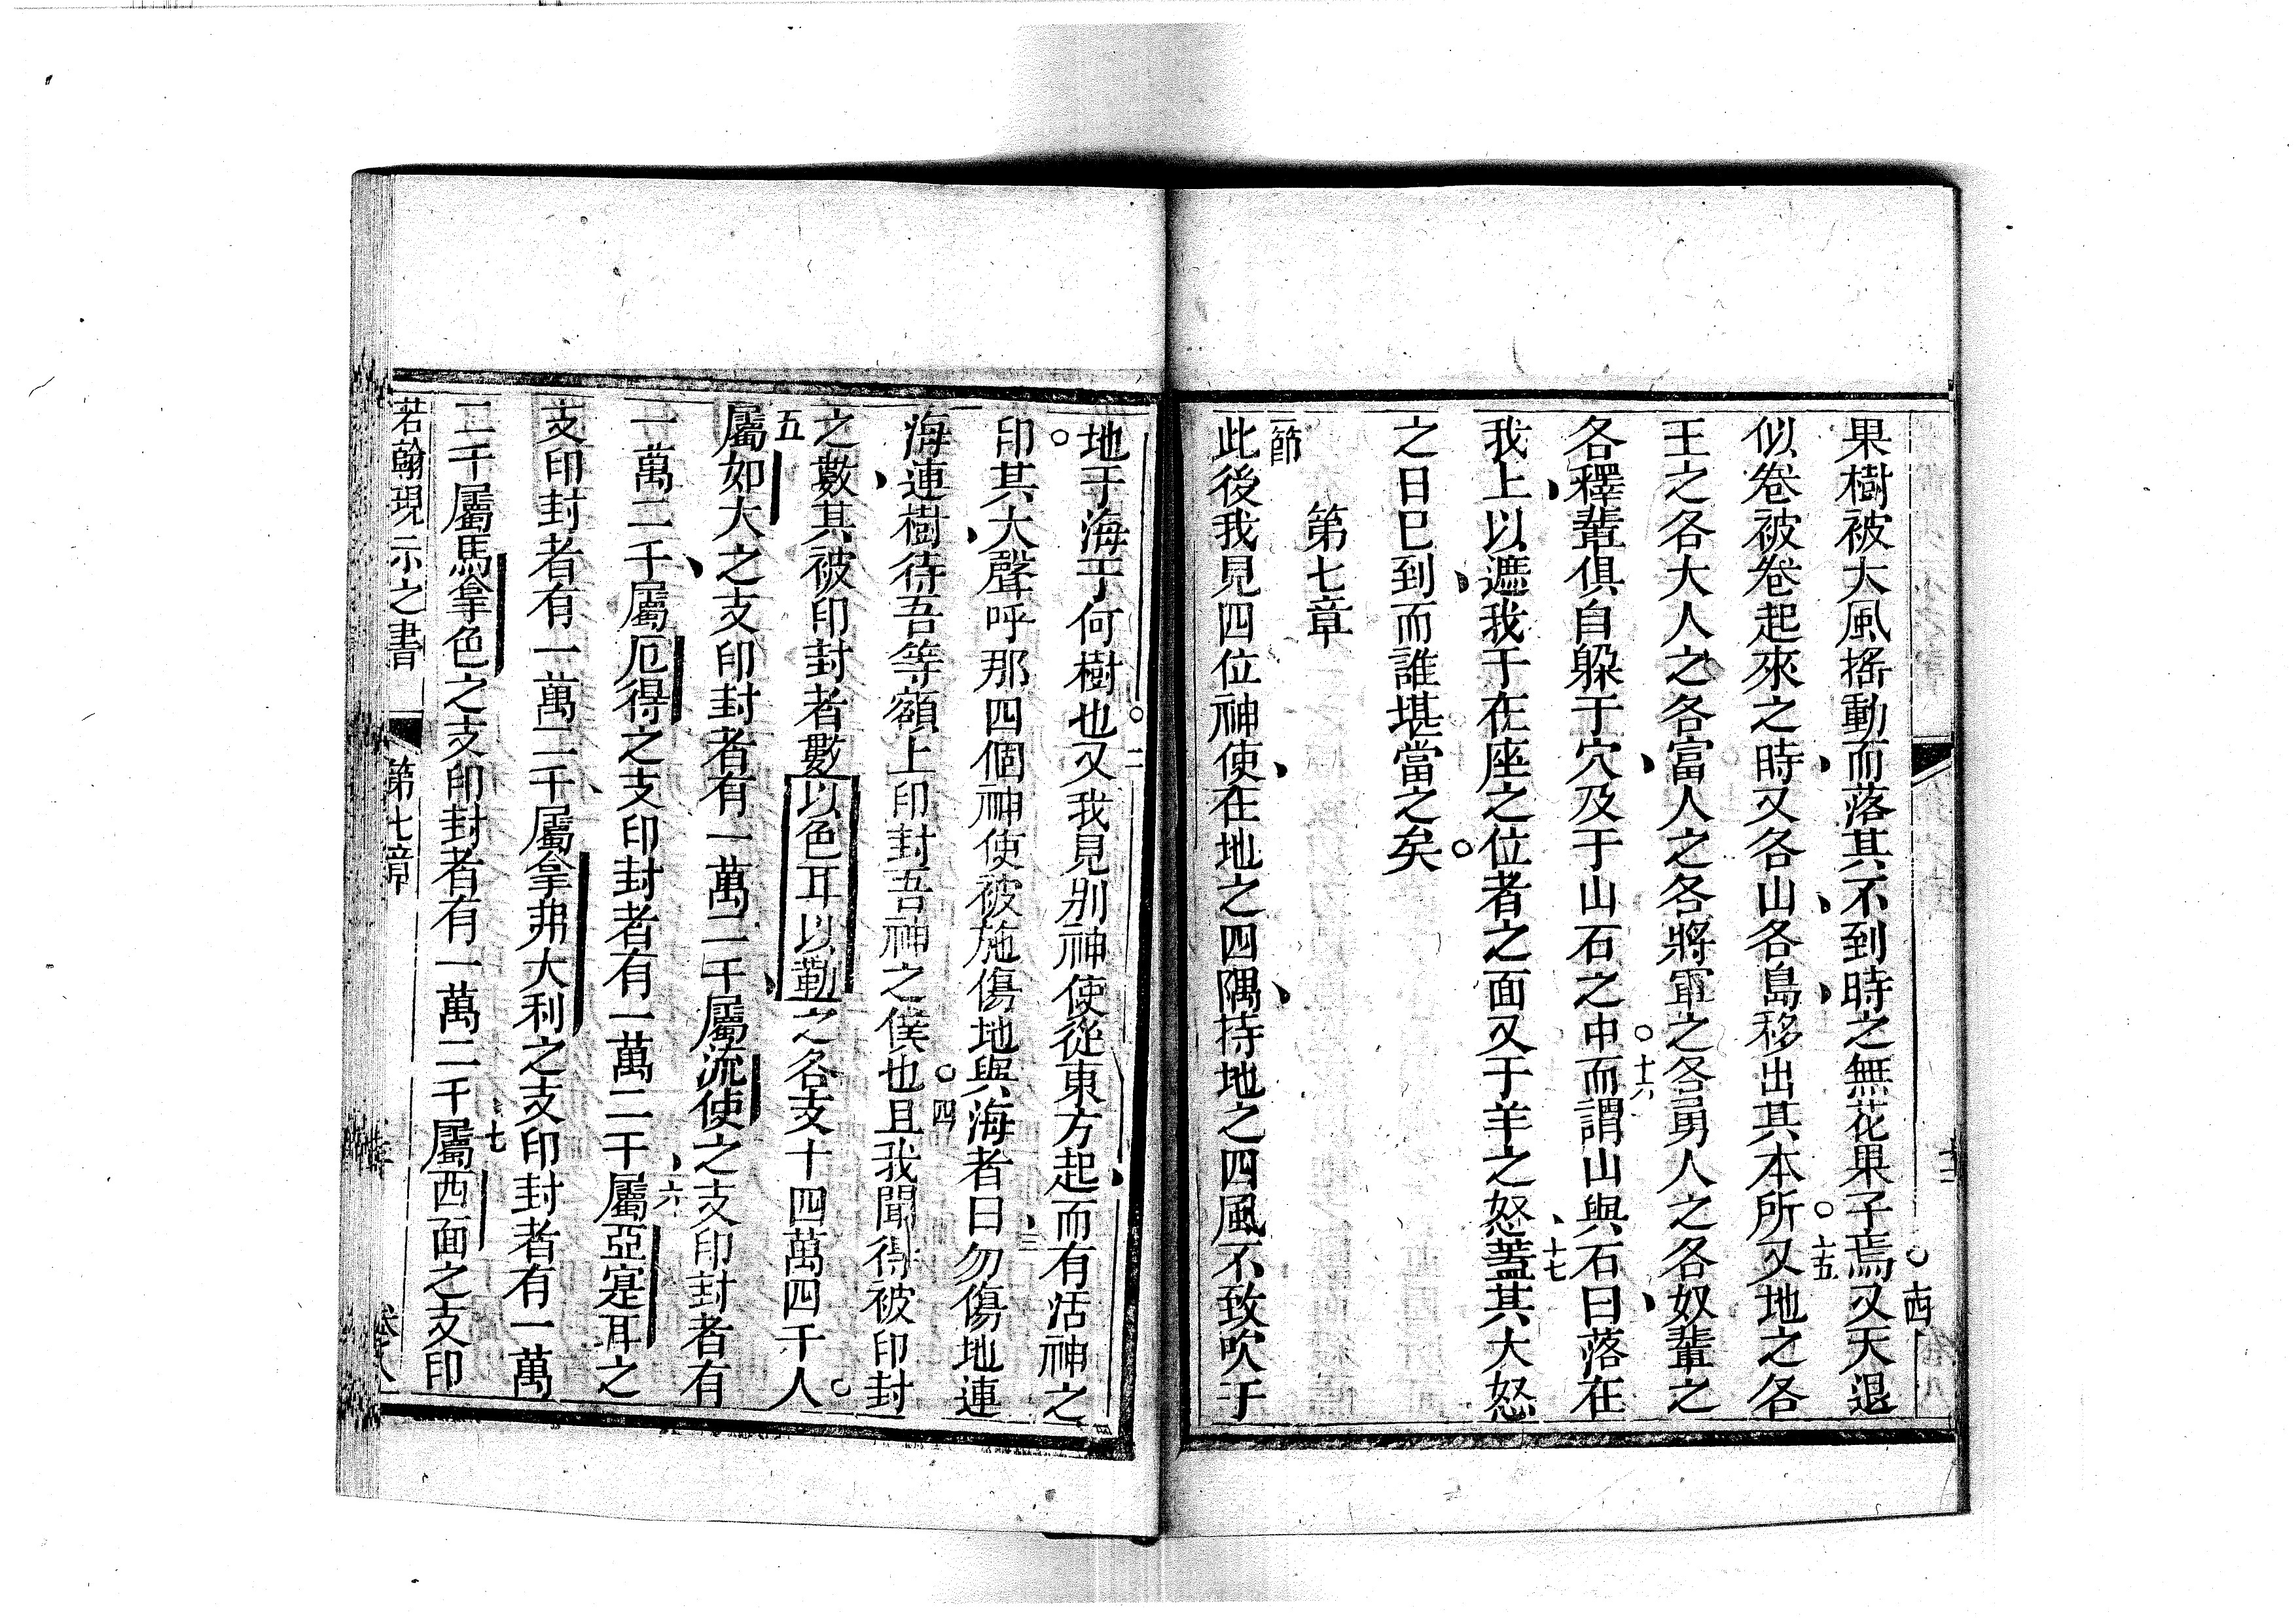 果樹被大風搖動而落其不到時之無花果子焉又天退
十四
似卷被卷起來之時又各山各島移出其本所又地之各
十五
王之各大人之各富人之各將軍之各勇人之各奴輩之
各釋輩俱自躲于穴及于山石之中而謂山與石曰落在
十六
我上以遮我于在座之位者之面又于羊之怒蓋其大怒
十七
之日已到而誰堪當之矣
第七章
一節
此後我見四位神使在地之四隅持地之四風不致吹于
地于海于何樹也又我見別神使從東方起而有活神之
二
印其大聲呼那四個神使被施傷地與海者曰勿傷地連
三
海連樹待吾等額上印封吾神之僕也且我聞得被印封
四
之數其被印封者數以色耳以勒之各支十四萬四千人
五
屬如大之支印封者有一萬二千屬流使之支印封者有
一萬二千屬厄得之支印封者有一萬二千屬亞寔耳之
六
支印封者有一萬二千屬拿弗大利之支印封者有一萬
二千屬馬拿色之支印封者有一萬二千屬西面之支印
七
若翰現示之書 第七章 卷八